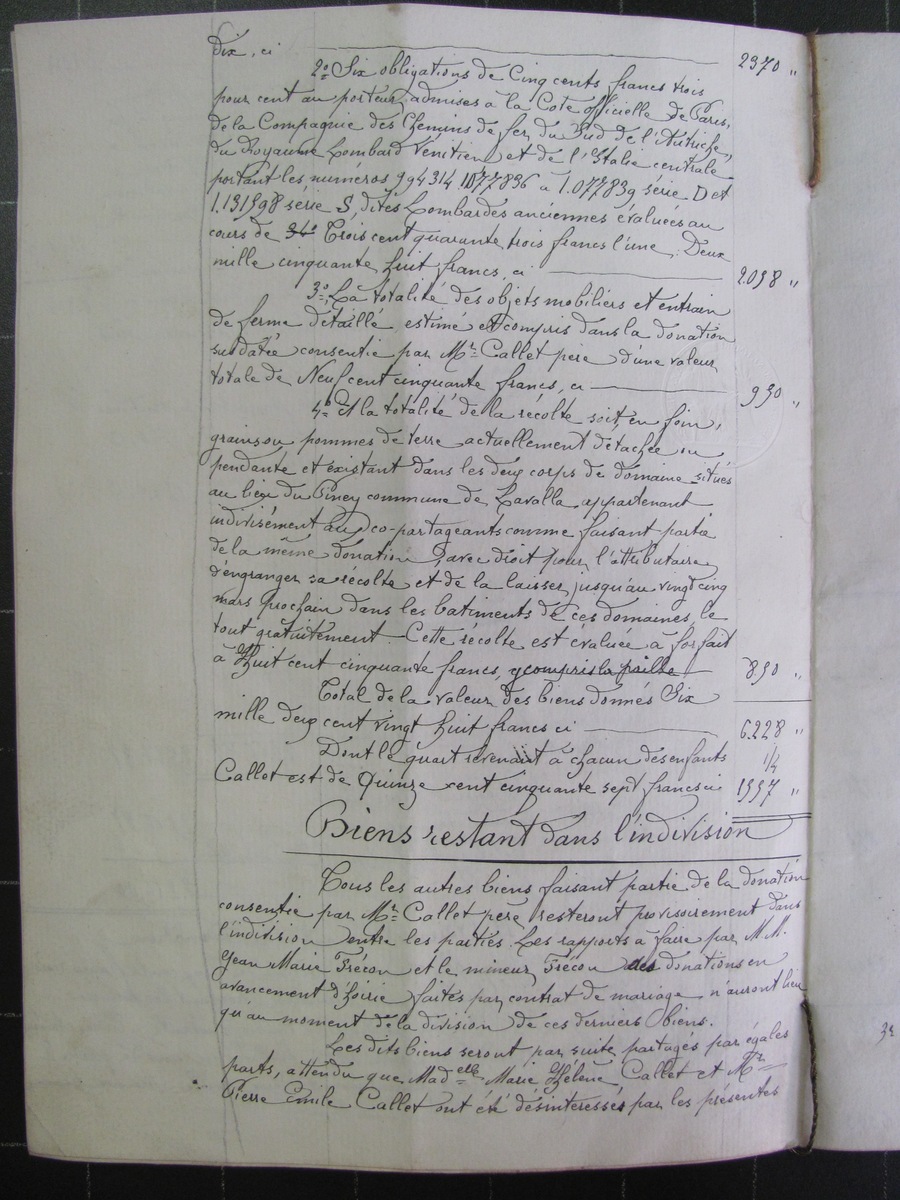 dix, ci 2370 "
2º Six obligations de Cinq cents francs trois
pour cent au porteur, admises à la Cote officielle de Paris,
de la Compagnie des Chemins de fer du Sud de l'Autriche,
du Royaume Lombard Vénitien et de l'Italie centrale
portant les numéros 994314 1077836 à 1.077839 série D et
1.131598 série S, dites Lombardes anciennes évaluées au
cours de Trois cent quarante trois francs l'une, Deux
mille cinquante huit francs, ci 2.058 "
3º La totalité des objets mobiliers et entrain
de ferme détaillé, estimé et compris dans la donation
susdatée consentie par Mr Callet père d'une valeur
totale de Neuf cent cinquante francs, ci 950 "
4º Et la totalité de la récolte soit en foin,
grains ou pommes de terre actuellement détachée ou
pendante et existant dans les deux corps de domaine situés
au lieu du Piney commune de Lavalla, appartenant
indivisément aux co-partageants comme faisant partie
de la même donation, avec droit pour l'attributaire
d'engranger sa récolte et de la laisser jusqu'au vingt cinq
mars prochain dans les batiments de ces domaines, le
tout gratuitement. Cette récolte est évaluée à forfait
à Huit cent cinquante francs, y compris la paille 850 "
Total de la valeur des biens donnés Six
mille deux cent vingt huit francs ci 6.228 "
Dont le quart revenant à chacun des enfants 1/4
Callet est de Quinze cent cinquante sept francs ci 1557 "
Biens restant dans l'indivision
Tous les autres biens faisant partie de la donation
consentie par Mr Callet père resteront provisoirement dans
l'indivision entre les parties. Les rapports à faire par M.M.
Jean Marie Frécon et le mineur Frécon des donations en
avancement d'hoirie faites par contrat de mariage n'auront lieu
qu'au moment de la division de ces derniers biens.
Les dits biens seront par suite partagés par égales
parts, attendu que Madelle Marie Hélène Callet et Mr
Pierre Emile Callet ont été désintéressés par les présentes